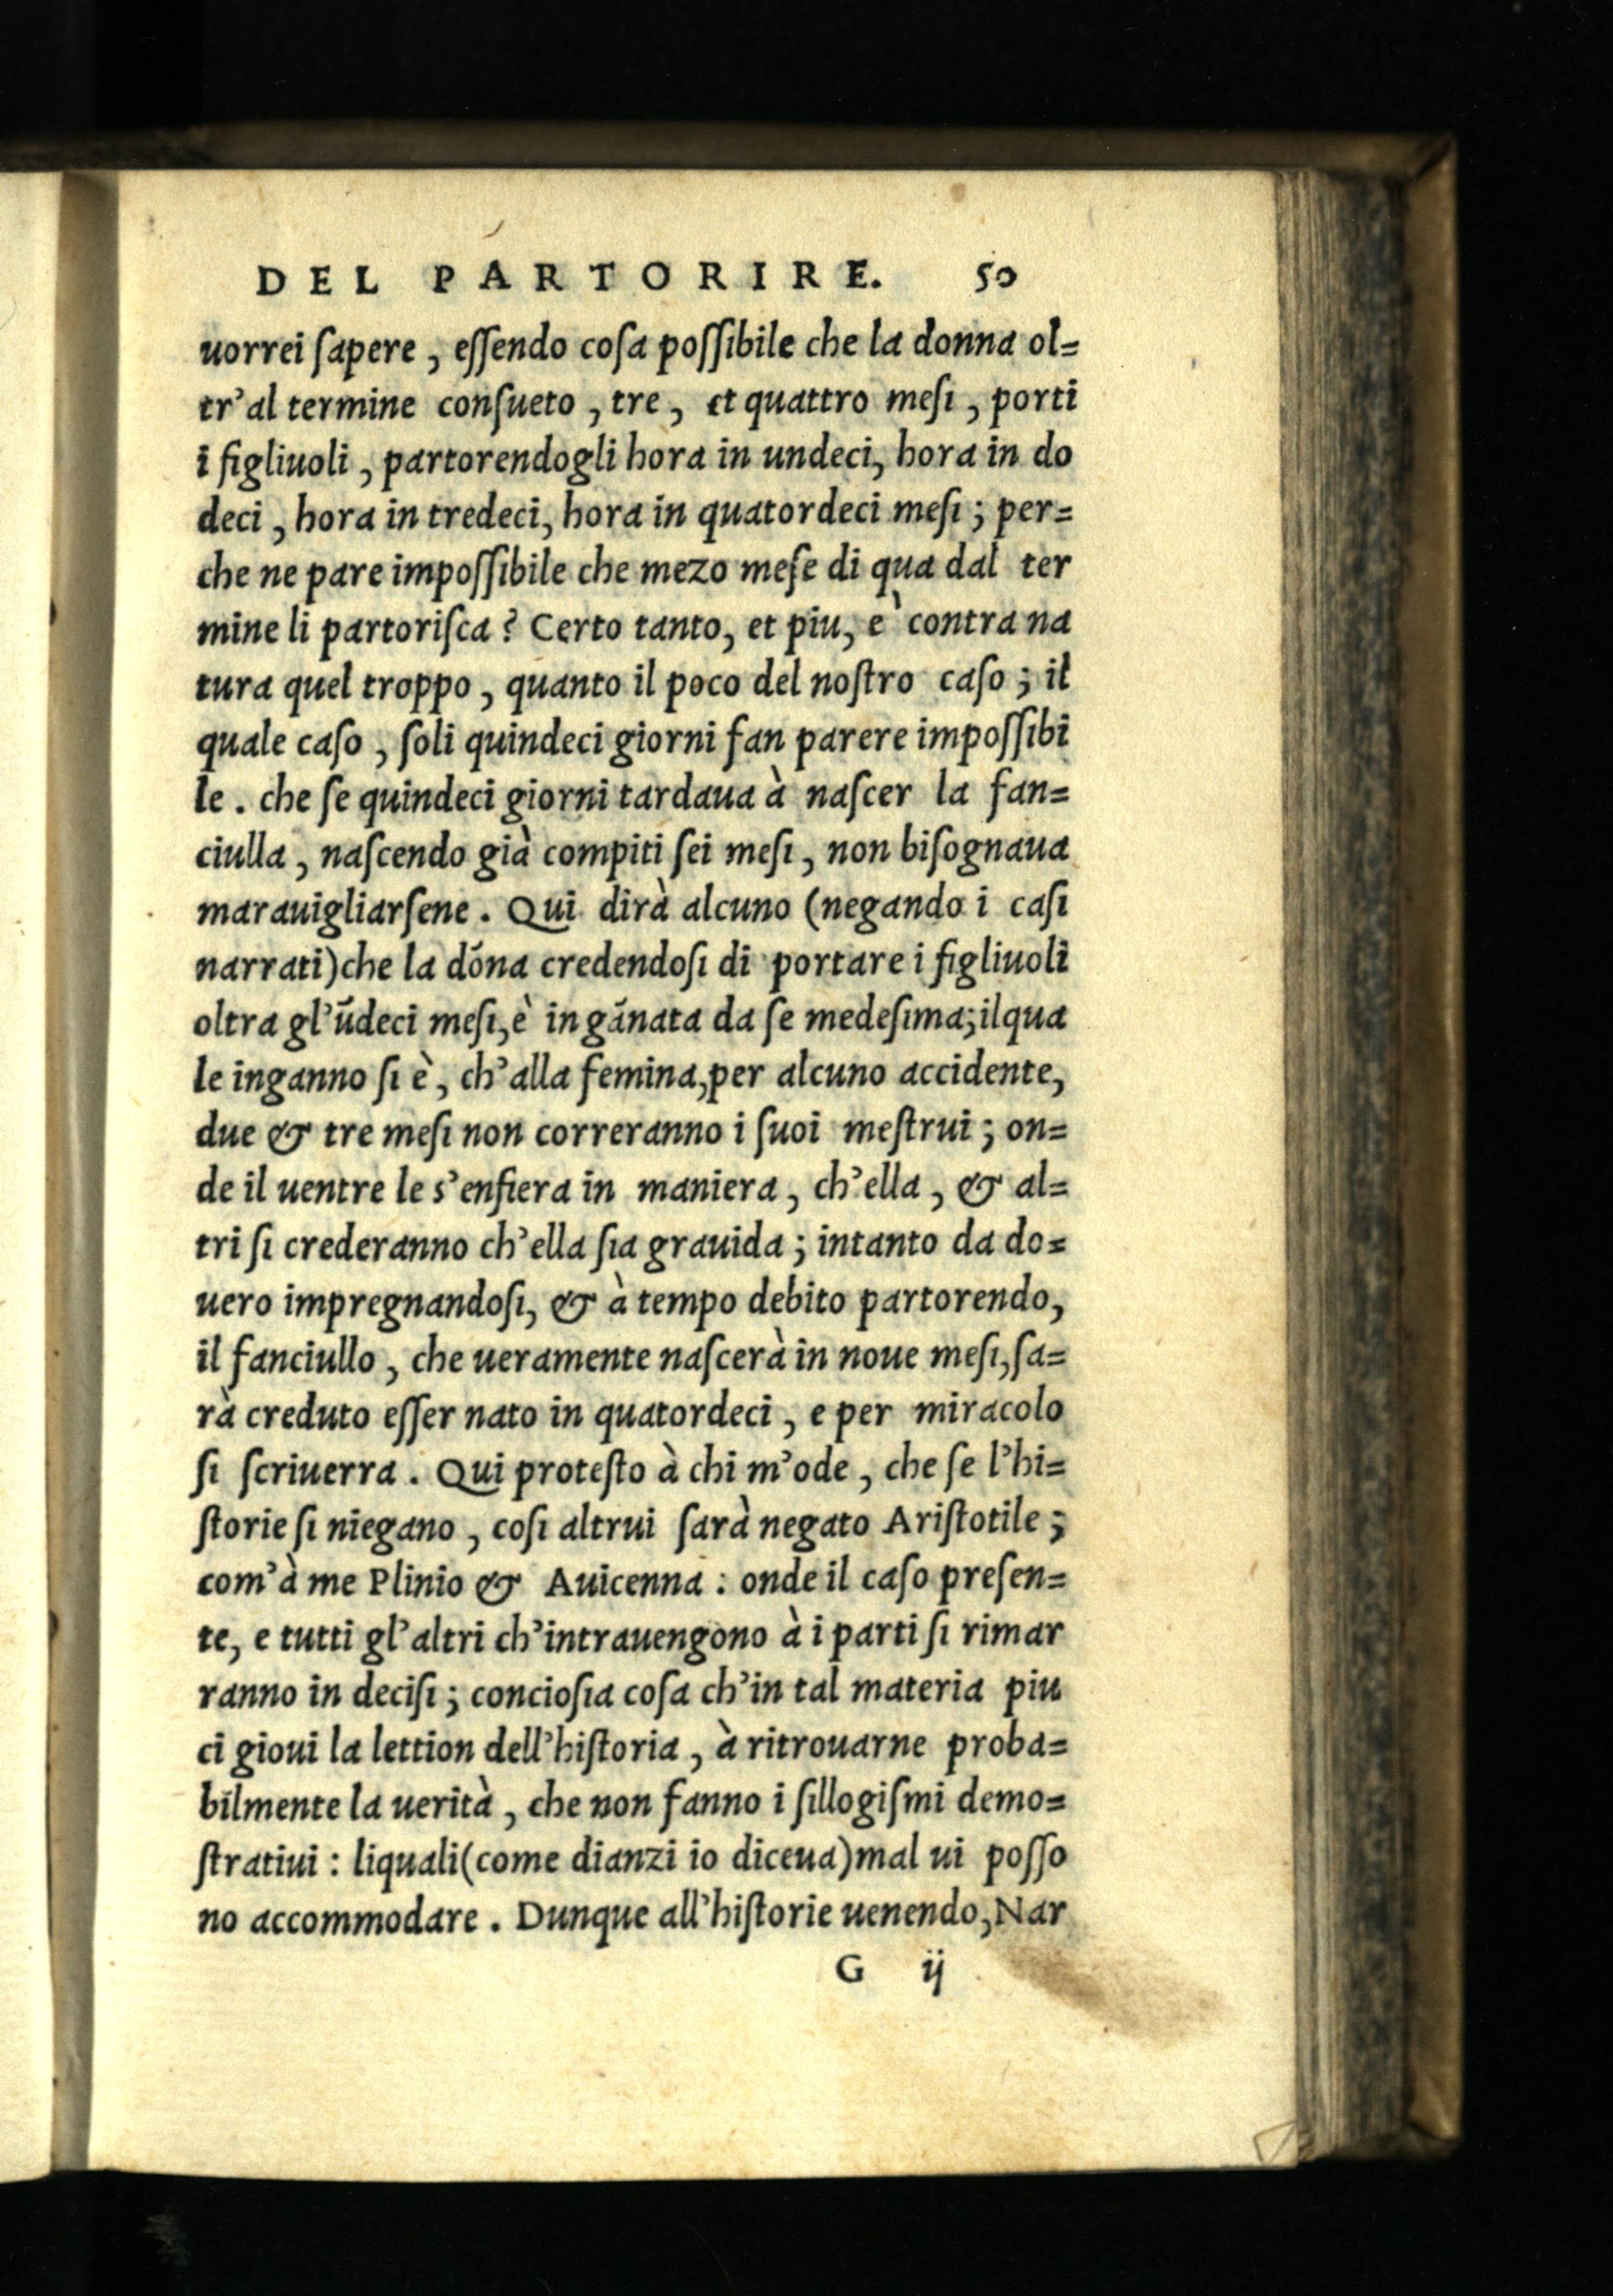 DEL PARTORIRE. 50
uorrei ſapere, eſſendo coſa poſſibile che la donna ol=
tr'al termine conſueto, tre, et quattro meſi, porti
i figliuoli, partorendogli hora in undeci, hora in do
deci, hora in tredeci, hora in quatordeci meſi; per=
che ne pare impoſſibile che mezo meſe di qua dal ter
mine li partoriſca? Certo tanto, et piu, è contra na
tura quel troppo, quanto il poco del noſtro caſo; il
quale caſo, ſoli quindeci giorni fan parere impoſſibi
le. che ſe quindeci giorni tardaua à naſcer la fan=
ciulla, naſcendo già compiti ſei meſi, non biſognaua
marauigliarſene. Qui dirà alcuno (negando i caſi
narrati) che la dõna credendoſi di portare i figliuoli
oltra gl'ũdeci meſi, è ingãnata da ſe medeſima; ilqua
le inganno ſi è, ch'alla femina, per alcuno accidente,
due & tre meſi non correranno i ſuoi meſtrui; on=
de il uentre le s'enfiera in maniera, ch'ella, & al=
tri ſi crederanno ch'ella ſia grauida; intanto da do=
uero impregnandoſi, & à tempo debito partorendo,
il fanciullo, che ueramente naſcerà in noue meſi, ſa=
rà creduto eſſer nato in quatordeci, e per miracolo
ſi ſcriuerra. Qui proteſto à chi m'ode, che ſe l'hi=
ſtorie ſi niegano, coſi altrui ſarà negato Ariſtotile;
com'à me Plinio & Auicenna: onde il caſo preſen=
te, e tutti gl'altri ch'intrauengono à i parti ſi rimar
ranno in deciſi; concioſia coſa ch'in tal materia piu
ci gioui la lettion dell'hiſtoria, à ritrouarne proba=
bilmente la uerità, che non fanno i ſillogiſmi demo=
ſtratiui: liquali (come dianzi io diceua) mal ui poſſo
no accommodare. Dunque all'hiſtorie uenendo, Nar
G ij